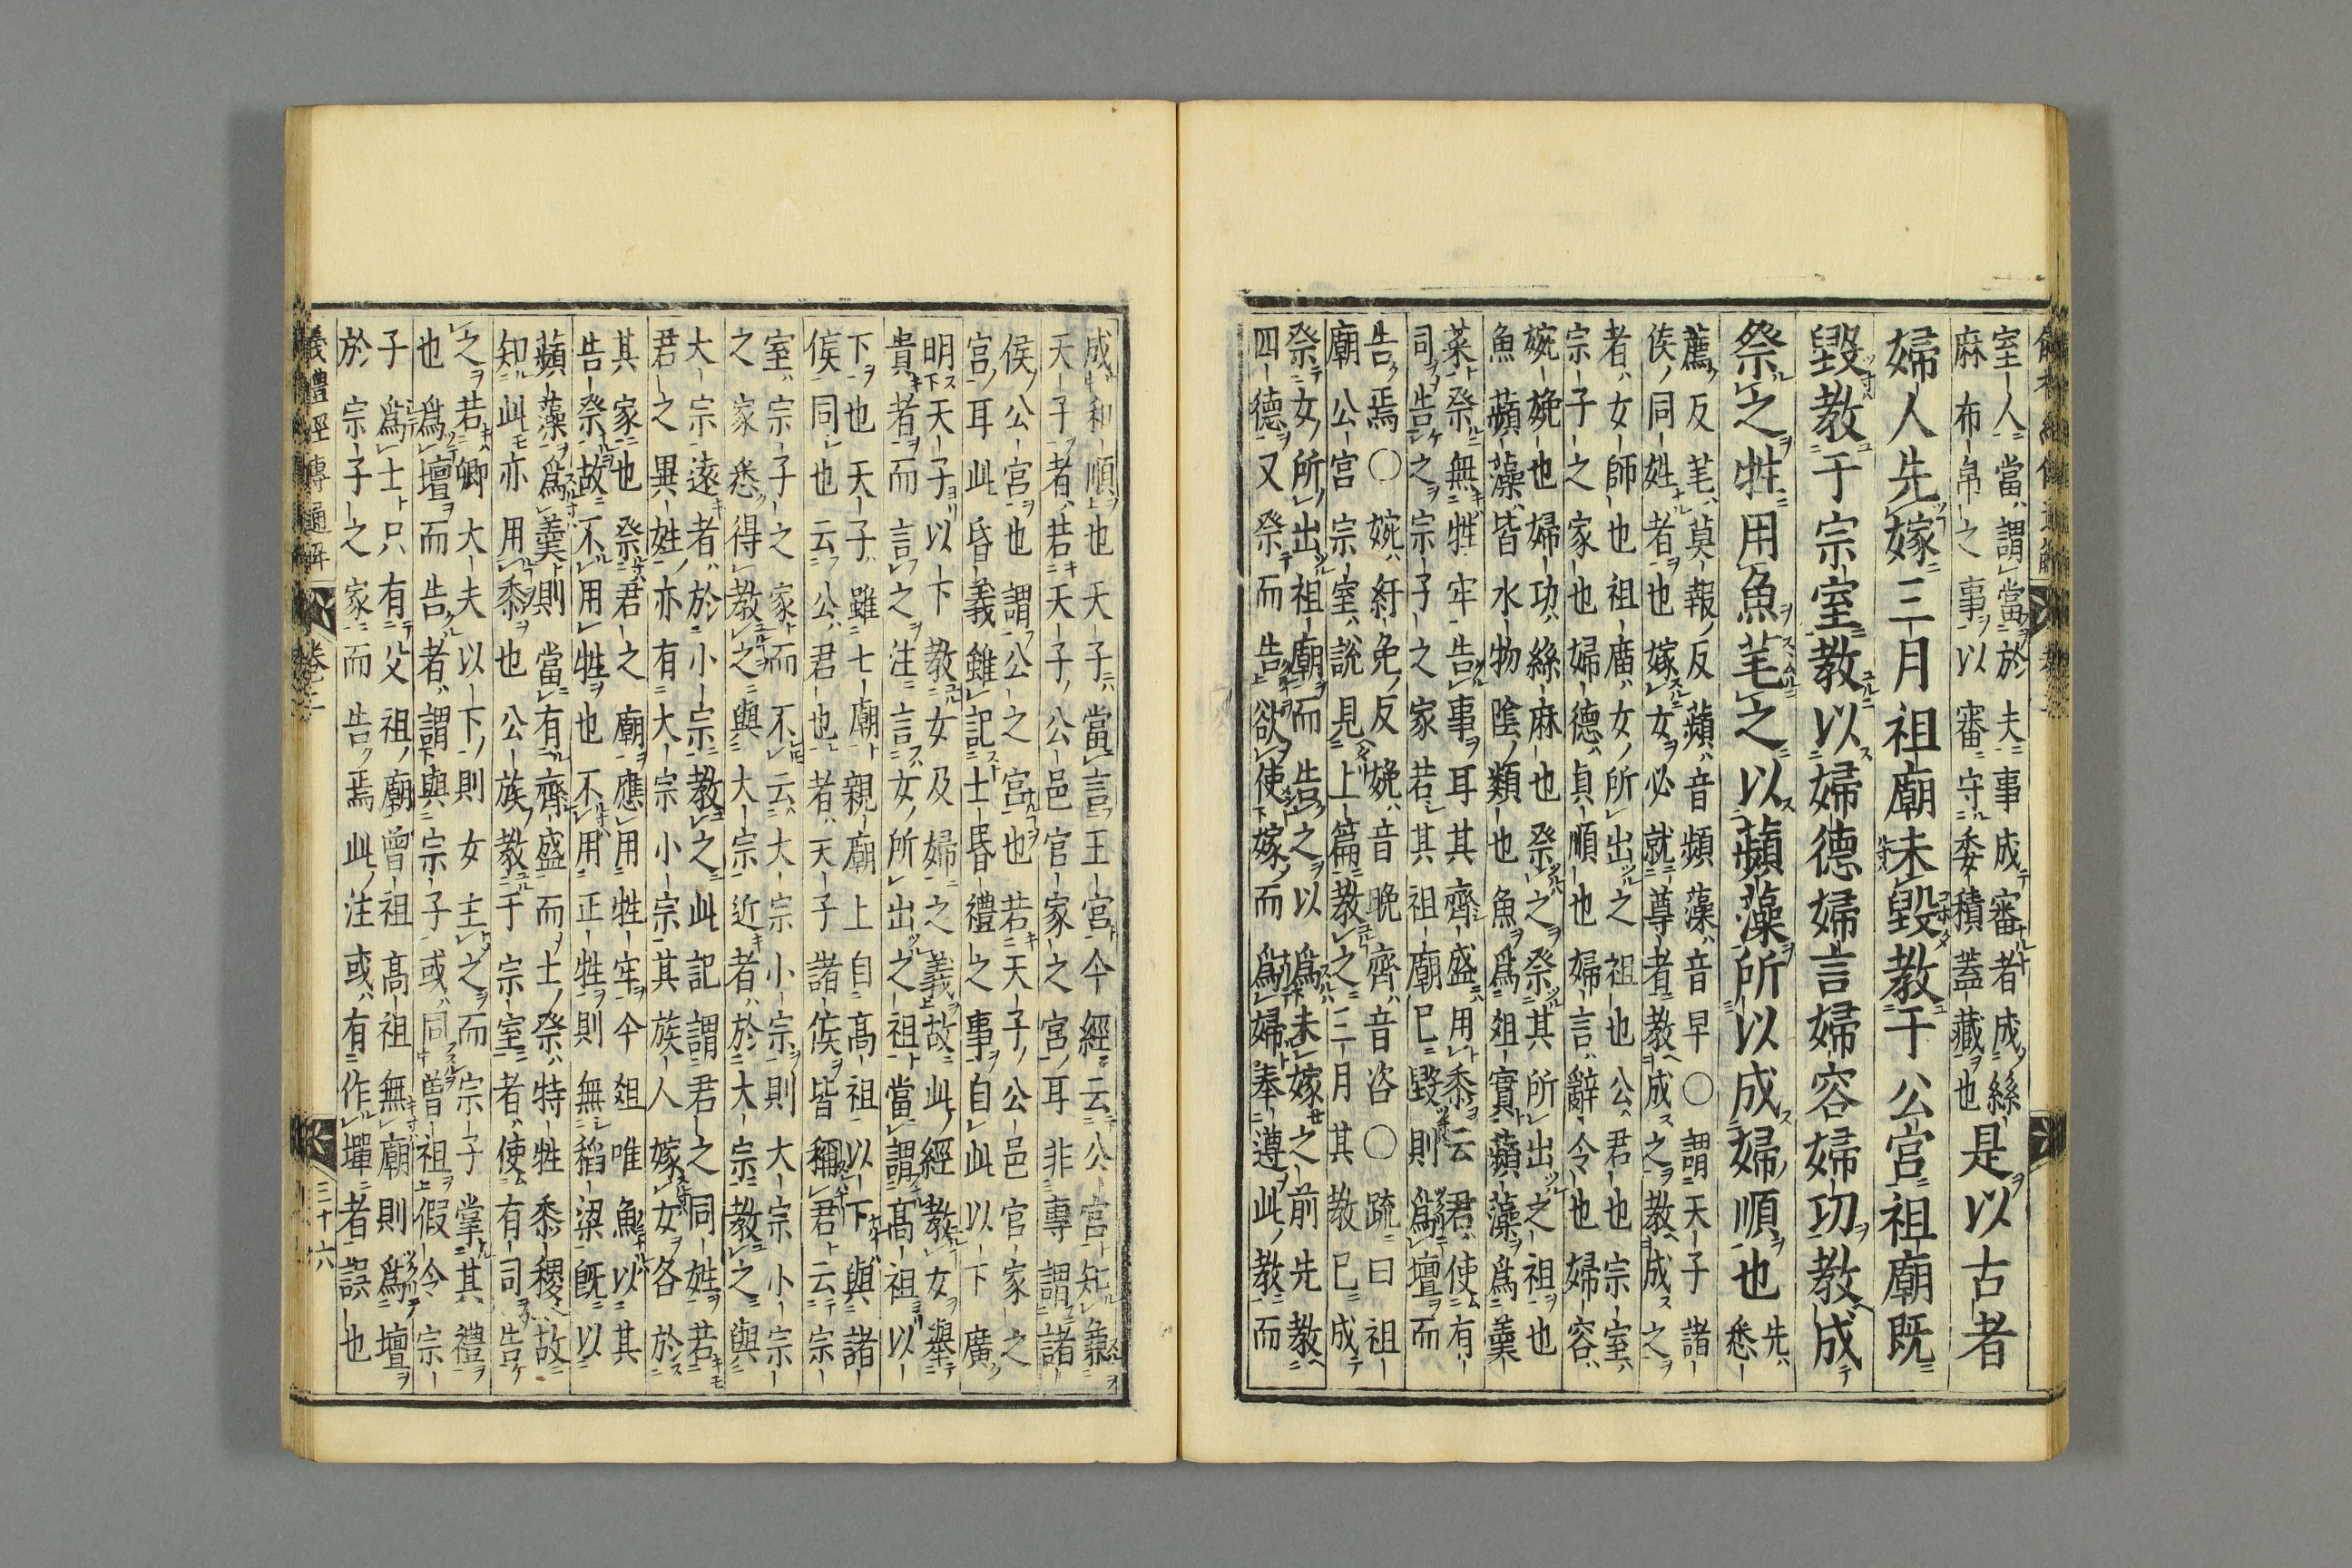 室人當謂當於夫事成審者成絲
麻布帛之事以審守委積蓋藏也
是以古者
婦人先嫁三月祖廟未毀教于公宮祖廟既
毀教于宗室教以婦德婦言婦容婦功教成
祭之牲用魚芼之以蘋藻所以成婦順也先悉
薦反芼莫報反蘋音頻藻音早〇謂天子諸
矦同姓者也嫁女必就尊者教成之教成之
者女師也祖廟女所出之祖也公君也宗室
宗子之家也婦德貞順也婦言辭令也婦容
婉娩也婦功絲麻也祭之祭其所出之祖也
魚蘋藻皆水物陰類也魚爲俎實蘋藻爲羹
菜祭無牲牢告事耳其齊盛用黍云君使有
司告之宗子之家若其祖廟已毀則爲壇而
告焉〇婉紆免反娩音晚齊音咨〇疏曰祖
廟公宮宗室說見上篇教之三月其教已成
祭女所出祖廟而告之以爲未嫁之前先教
四德又祭而告欲使嫁而爲婦奉遵此教而
成和順也天子當言王宮今經云公宮知兼
天子者若天子公邑官家之宮耳非專謂諸
侯公宮也謂公之宮也若天子公邑官家之
宮耳此昏義雖記士昏禮之事自此以下廣
明天子以下教女及婦之義故此經教女舉
貴者而言之注言女所出之祖當謂髙祖以
下也天子雖七廟親廟上自髙祖以下與諸
矦同也云公君也者天子諸矦皆稱君云宗
室宗子之家而不云大宗小宗則大宗小宗
之家悉得教之與大宗近者於大宗教之與
大宗遠者於小宗教之此記謂君之同姓若
君之異姓亦有大宗小宗其族人嫁女各於
其家也祭君之廟應用牲牢今俎唯魚以其
告祭故不用牲也不用正牲則無稻粱旣以
蘋藻爲羹則當有齊盛而士祭特牲黍稷故
知此亦用黍也公族教于宗室者使有司告
之若卿大夫以下則女主之而宗子掌其禮
也爲壇而告者謂與宗子或同曽祖假令宗
子爲士只有父祖廟曾祖髙祖無廟則爲壇
於宗子之家而告焉此注或有作墠者誤也
儀禮經傳通解 卷二 三十六